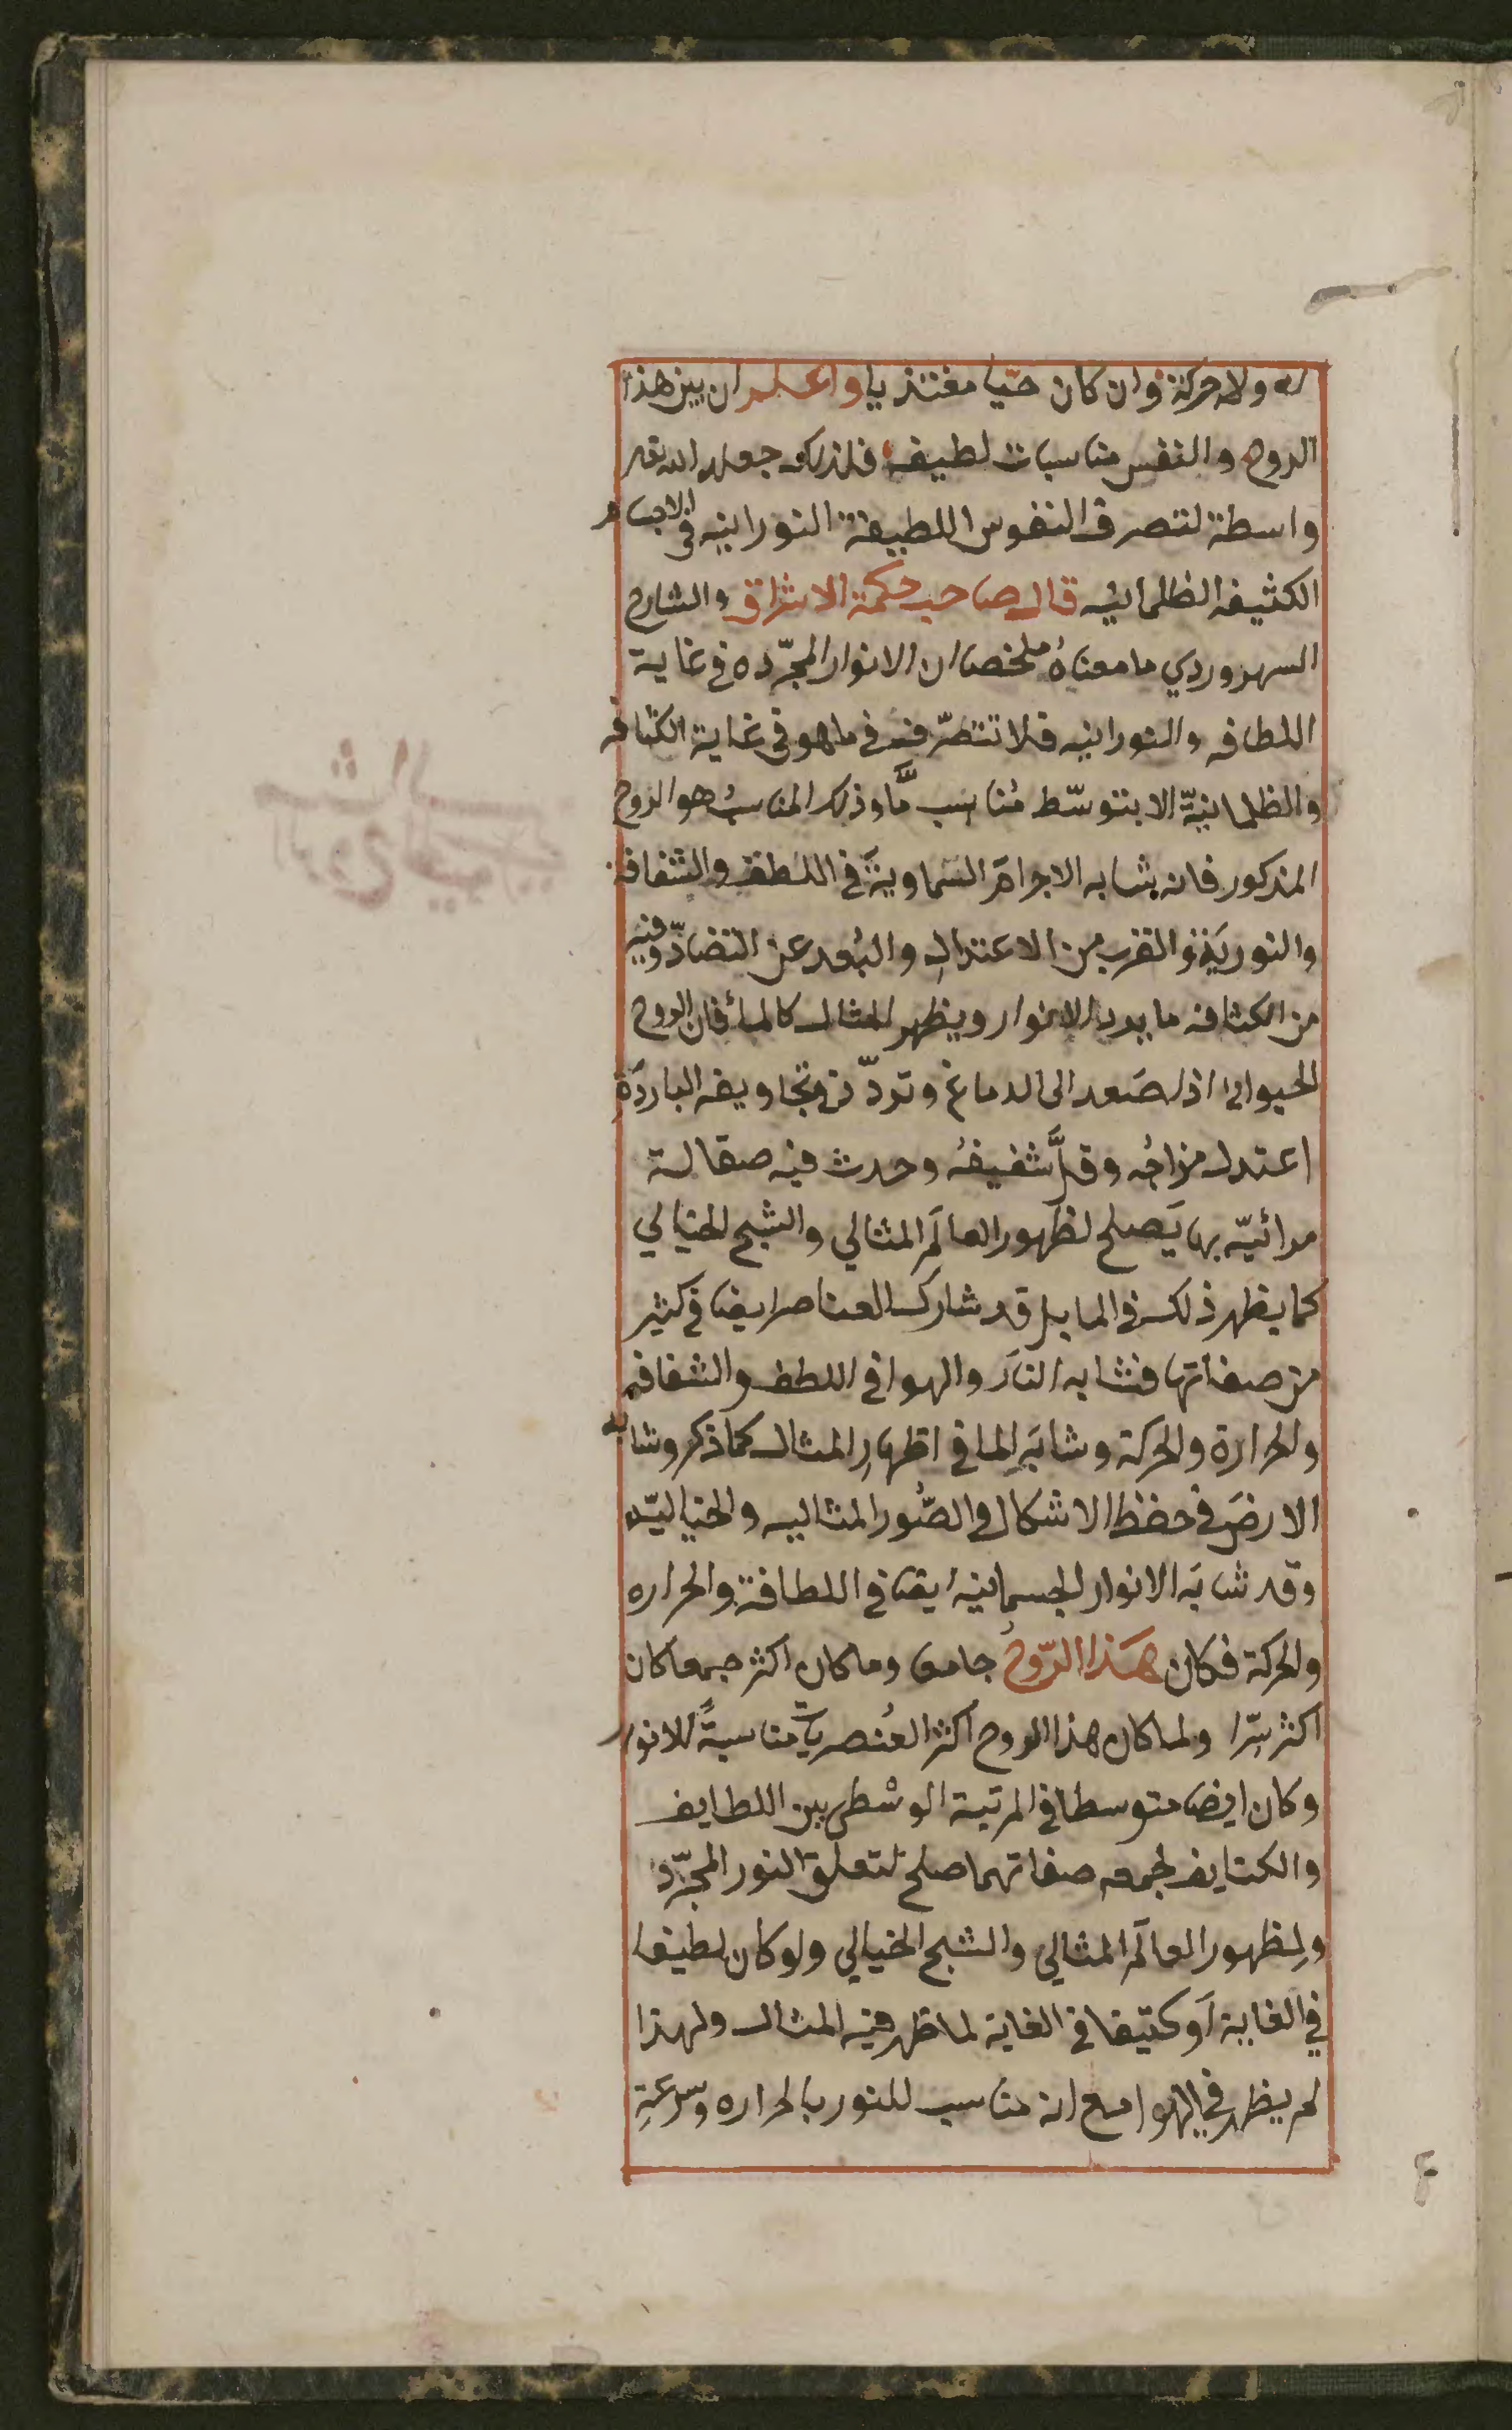 له ولا حركة وان كان حيّا مغتذيا واعلم ان بين هذا
الروح والنفس مناسبات لطيفه فلذلك جعله الله تعـ
واسطة لتصرف النفوس اللطيفة النورانيه في الاجسام
الكثيفه الظلمانيه قال صاحب حكمة الاشراق والشارح
السهروردي ما معناهُ ملخصا ان الانوار المجرّده في غاية
اللطافه والنورانيه فلا تتصرّف في ما هو في غاية الكثافه
والظلمانيّة الا بتوسّط مُناسب مَّا وذلك المناسبُ هو الروح
المذكور فانه يشابه الاجرامَ السّماويةَ في اللطف والشفافة
والنوريَة والقرب من الاعتدالِ والبُعد عن التضادّ وفيه
من الكثافه ما يرد الانوار ويظهر المثال كالمأ فان الروح
الحيواني اذا صَعد الى الدماغ وتردّد في تجاويفه الباردَة
اعتدل مزاجُه وقلَّ شفيفُه وحدث فيه صقالة
مرائيّه بها يَصلح لظهور العالَم المثالي والشبح الخيالي
كما يظهر ذلك في الما بل قد شارك العناصر ايضا في كثير
من صفاتها فشابه النارَ والهوا في اللطف والشفافه
والحرارة والحركة وشابَه الما في اظهارِ المثال كما ذكر وشابه
الارضَ في حفظ الاشكال والصُّور المثاليه والخياليّه
وقد شابَه الانوار الجسمانيه ايضا في اللطافة والحراره
والحركة فكان هَذا الرّوحُ جامعا وما كان اكثر جمعا كان
اكثر سِرّا ولما كان هذا الروح اكثر العُنصريات مناسبةً للانوار
وكان ايضا متوسطا في المرتبة الوسْطى بين اللطايف
والكثايف لجمعه صفاتهما صلح لتعلق النور المجرّد
ولِظهور العالَم المثالي والشبح الخيالي ولو كان لطيفا
في الغاية اَو كثيفا في الغاية لما ظهر فيه المثال ولهذا
لم يظهر في الهوا مع انه مناسب للنور بالحراره وسرعةِ